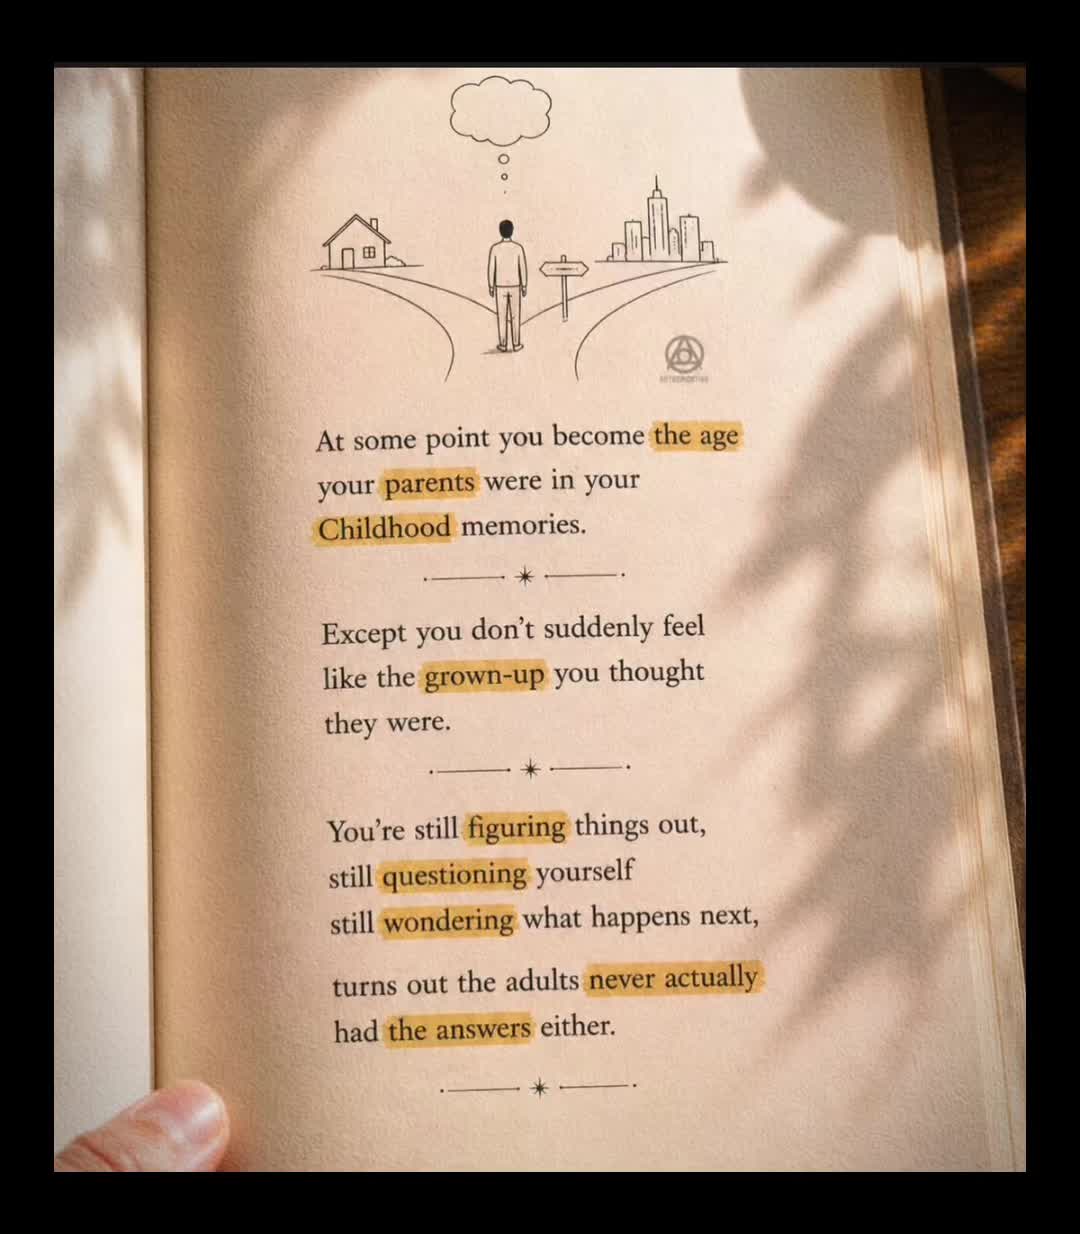 At some point you become the age
your parents were in your
Childhood memories.
Except you don't suddenly feel
like the grown-up you thought
they were.
You're still figuring things out,
still questioning yourself
still wondering what happens next,
turns out the adults never actually
had the answers either.